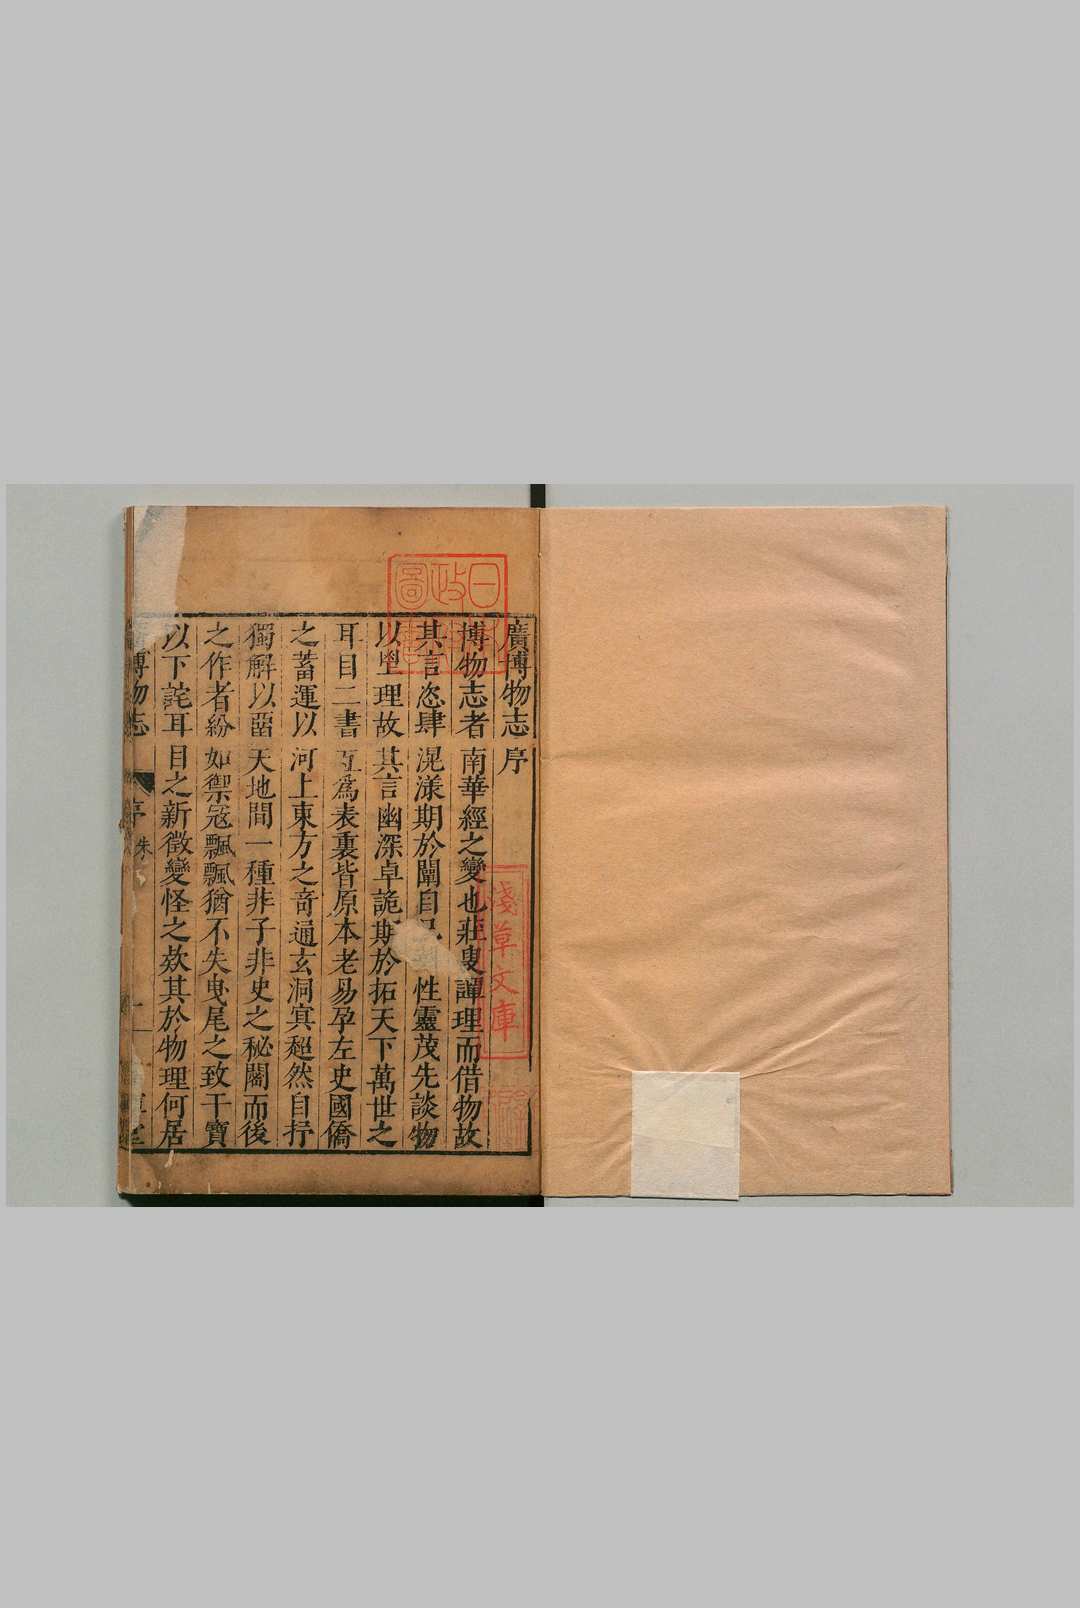 廣博物志序
博物志者南華經之變也莊叟譚理而借物故
其言恣肆滉漾期於闡自己性靈茂先談物
以理故其言幽深卓詭期於拓天下萬世之
耳目二書互爲表裏皆原本老易孕左史國僑
之蓄運以河上東方之竒通玄洞冥超然自抒
獨解以函天地間一種非子非史之秘閟而後
之作者紛如禦冦飄飄猶不失曳尾之致干寶
以下詫耳目之新徵變怪之欸其於物理何居
博物志
序
朱
一
日
政
圖
淺草文庫